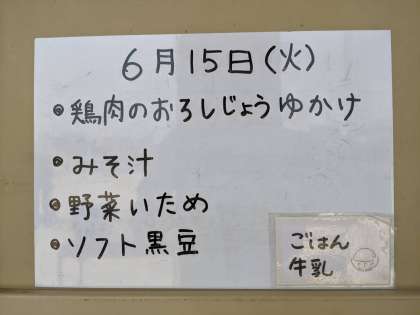 6月15日(火)
• 鶏肉のおろしじょうゆかけ
• みそ汁
• 野菜いため
• ソフト黒豆
ごはん
牛乳